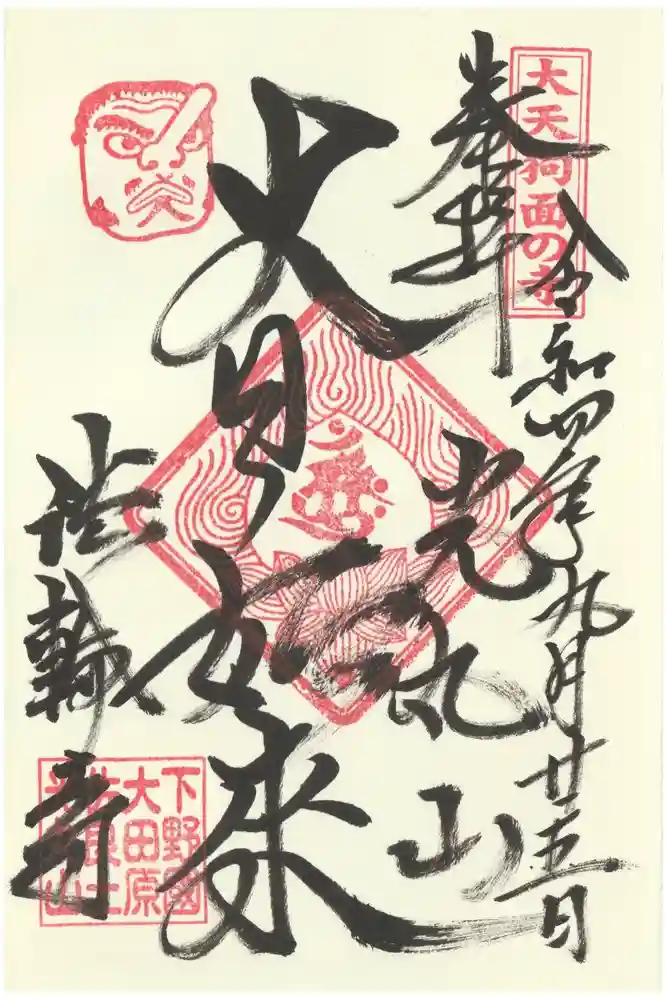 大天狗面の寺
奉拝
令和四年九月廿五日
光丸山
大日如来
法輪寺
下野國
大田原
佐良土
光丸山